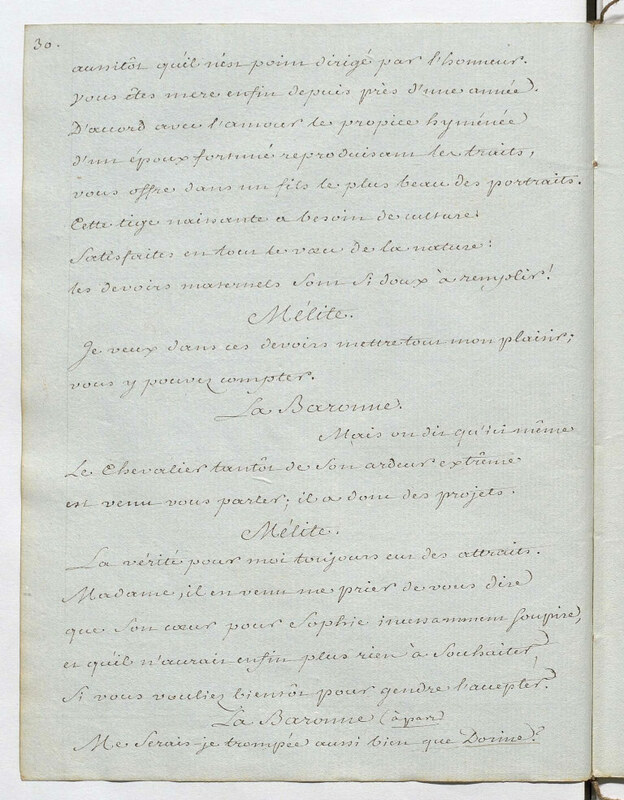 30.
aussitôt qu'il n'est point dirigé par l'honneur.
Vous êtes mere enfin depuis près d'une année.
D'accord avec l'amour le propice hyménée
d'un époux fortuné reproduisant les traits,
vous offre dans un fils le plus beau des portraits.
Cette tige naissante a besoin de culture:
Satisfaites en tout le vœu de la nature:
les devoirs maternels sont si doux à remplir!
Mélite.
Je veux dans ces devoirs mettre tout mon plaisir;
vous y pouvez compter.
La Baronne.
Mais on dit qu'ici même
Le Chevalier tantôt de son ardeur extrême
est venu vous parler; il a donc des projets.
Mélite.
La vérité pour moi toujours eut des attraits.
Madame, il est venu me prier de vous dire
que son cœur pour Sophie incessamment soupire,
et qu'il n'aurait enfin plus rien à souhaiter,
Si vous vouliez bientôt pour gendre l'accepter.
La Baronne (à part)
Me serais-je trompée aussi bien que Dorine?